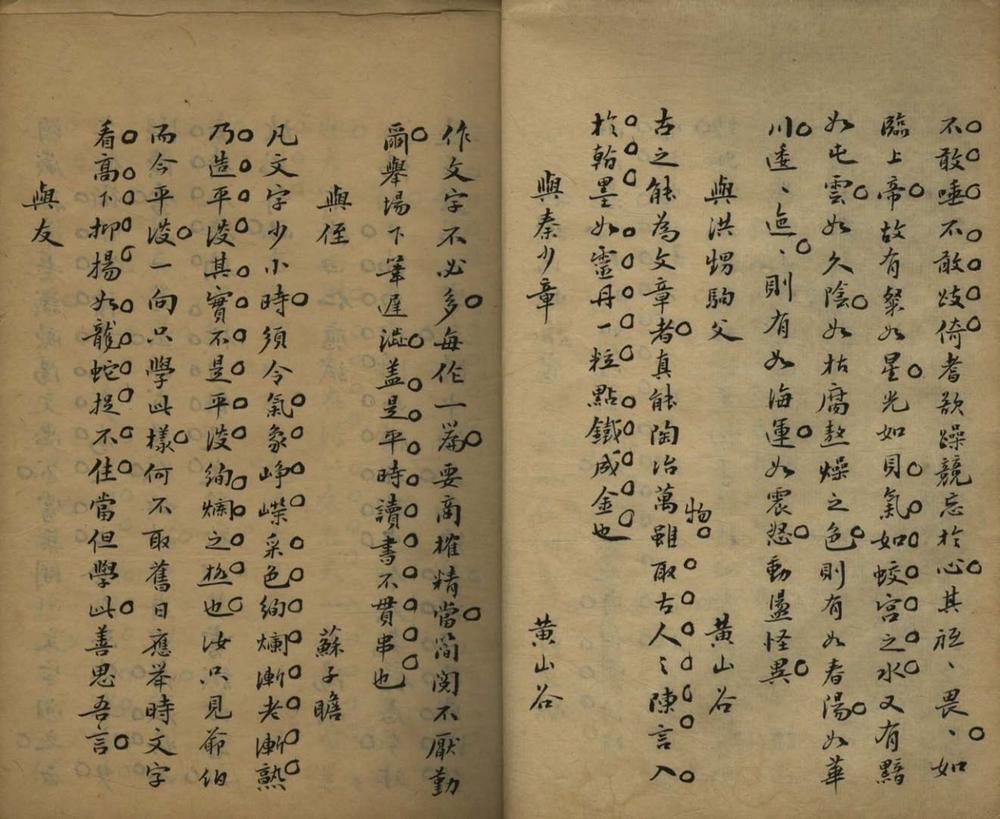 不敢唾不敢跂倚耆欲躁競忘於心其祗、畏、如
臨上帝故有粲如星光如貝氣如蛟宮之水又有黯
如屯雲如久陰如枯腐熬燥之色則有如春陽如華
川逶、迤、則有如海運如震怒動盪怪異
與洪甥駒父　黃山谷
古之能為文章者真能陶冶萬物雖取古人之陳言入
於翰墨如靈丹一粒點鐵成金也
與秦少章　黃山谷
作文字不必多每作一篇要商榷精當簡閱不厭勤
爾舉場下筆遲澁蓋是平時讀書不貫串也
與侄　蘇子瞻
凡文字少小時須令氣象崢嶸采色絢爛漸老漸熟
乃造平淡其實不是平淡絢爛之極也汝只見爺伯
而今平淡一向只學此樣何不取舊日應舉時文字
看高下抑揚如龍蛇捉不住當但學此善思吾言
與友